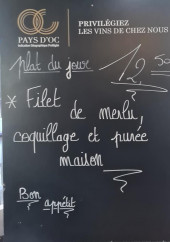 PRIVILÉGIEZ
LES VINS DE CHEZ NOUS
PAYS D'OC
Indication Géographique Protégée
plat du jour 12,50
* Filet
de merlu,
coquillage et purée
maison
Bon
appétit